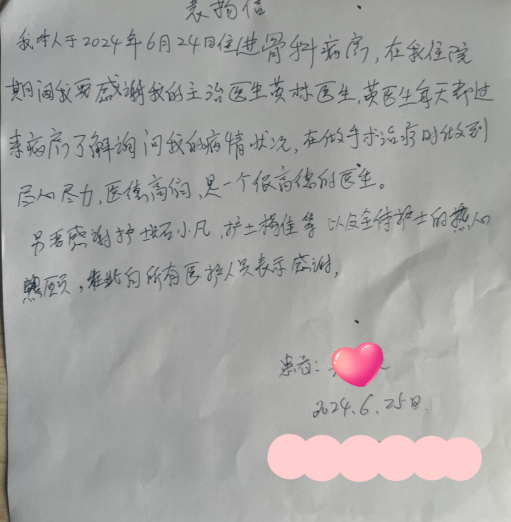 表扬信
我本人于2024年6月24日住进骨科病房,在我住院
期间我要感谢我的主治医生黄林医生,黄医生每天都过
来病房了解询问我的病情状况,在做手术治疗时做到
尽心尽力,医德高尚,是一个很高德的医生。
另要感谢护士石小凡,护士杨佳等以及全体护士的热心
照顾,在此向所有医护人员表示感谢,
患者:
2024.6.25日.